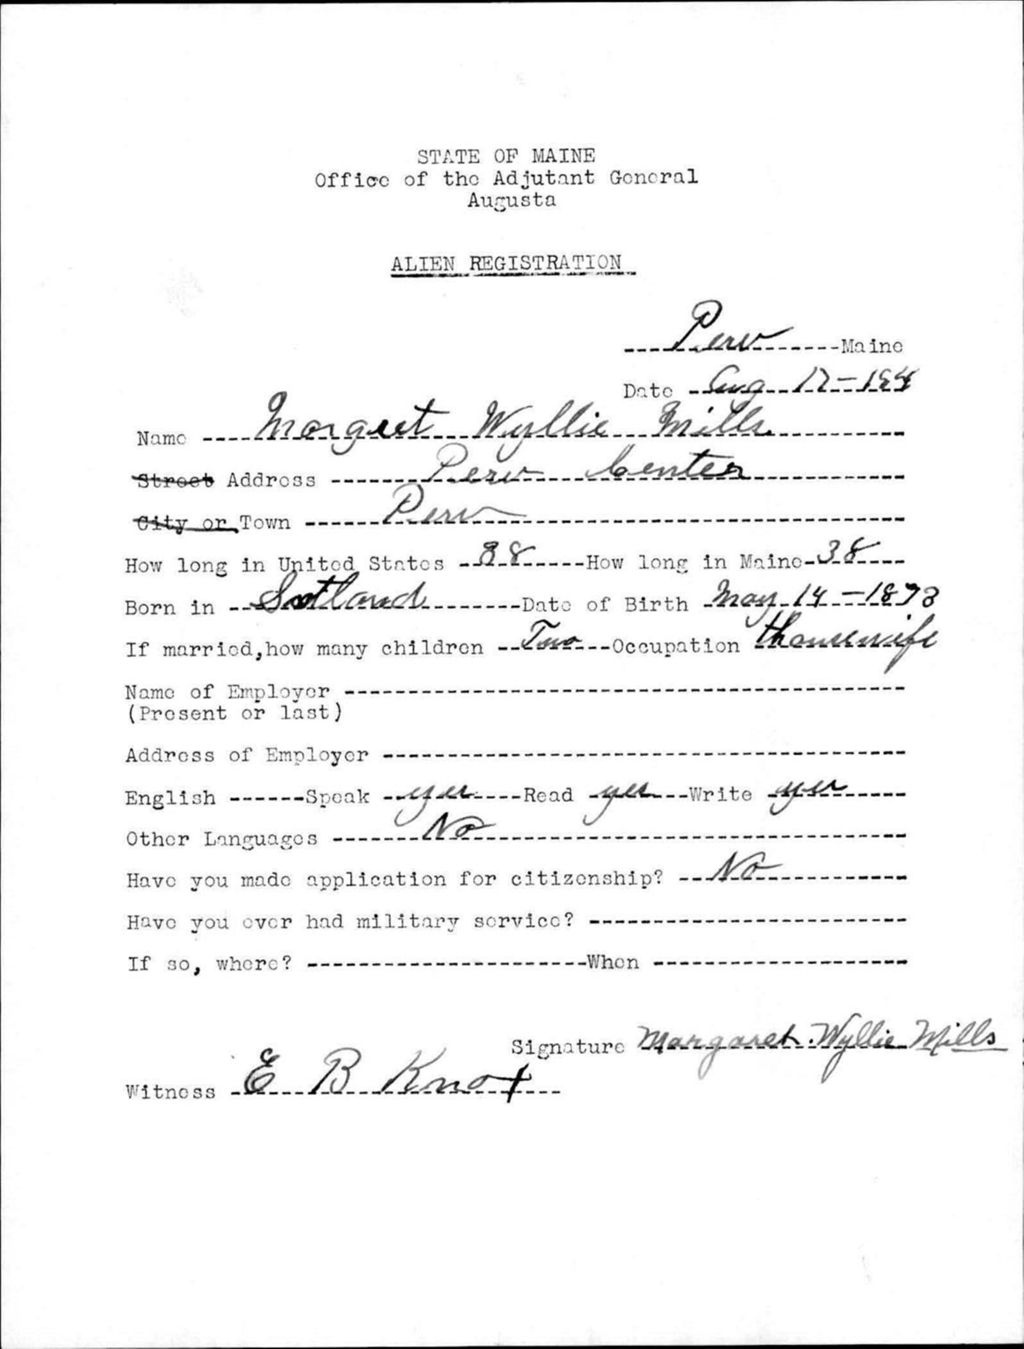 STATE OF MAINE
Office of the Adjutant General
Augusta
ALIEN REGISTRATION
Peru Maine
Date Aug 17-194
Name Margaret Wyllie Mills
Street Address Peru Center
City or Town Peru
How long in United States 38 How long in Maine 38
Born in Scotland Date of Birth May 14-1873
If married, how many children Two Occupation Housewife
Name of Employer
(Present or last)
Address of Employer
English Speak yes Read yes Write yes
Other Languages No
Have you made application for citizenship? No
Have you ever had military service?
If so, where? When
Signature Margaret Wyllie Mills
Witness E B Knox